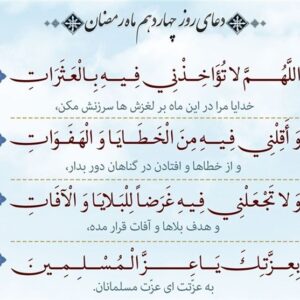 دعای روز چهاردهم ماه رمضان
اللهُمَّ لا تُؤَاخِذْنِي فِيهِ بِالْعَثَرَاتِ
خدایا مرا در این ماه بر لغزش ها سرزنش مکن،
وَ أَقِلْنِي فِيهِ مِنَ الْخَطَايَا وَ الْهَفَوَاتِ
و از خطاها و افتادن در گناهان دور بدار،
وَ لا تَجْعَلْنِي فِيهِ غَرَضاً لِلْبَلايَا وَ الْآفَاتِ
و هدف بلاها و آفات قرار مده،
بِعِزَّتِكَ يَا عِزَّ الْمُسْلِمِينَ
به عزّتت ای عزّت مسلمانان.